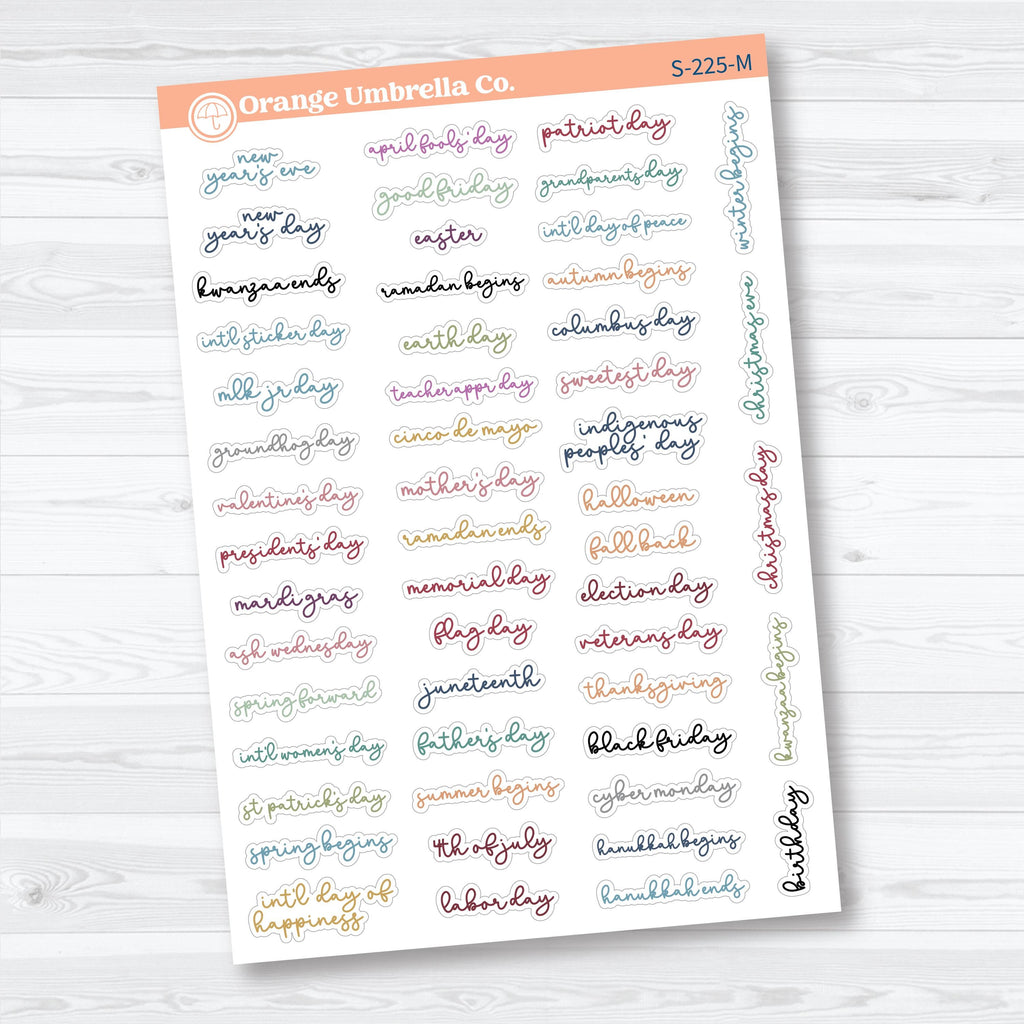 Orange Umbrella Co.
S-225-M
new
year's eve
new
year's day
kwanzaa ends
int'l sticker day
mlk jr day
groundhog day
valentine's day
presidents' day
mardi gras
ash wednesday
spring forward
int'l women's day
st patrick's day
spring begins
int'l day of
happiness
april fools' day
good friday
easter
ramadan begins
earth day
teacher appr day
cinco de mayo
mother's day
ramadan ends
memorial day
flag day
juneteenth
father's day
summer begins
4th of july
labor day
patriot day
grandparents day
int'l day of peace
autumn begins
columbus day
sweetest day
indigenous
peoples' day
halloween
fall back
election day
veterans day
thanksgiving
black friday
cyber monday
hanukkah begins
hanukkah ends
winter begins
christmas eve
christmas day
kwanzaa begins
birthday